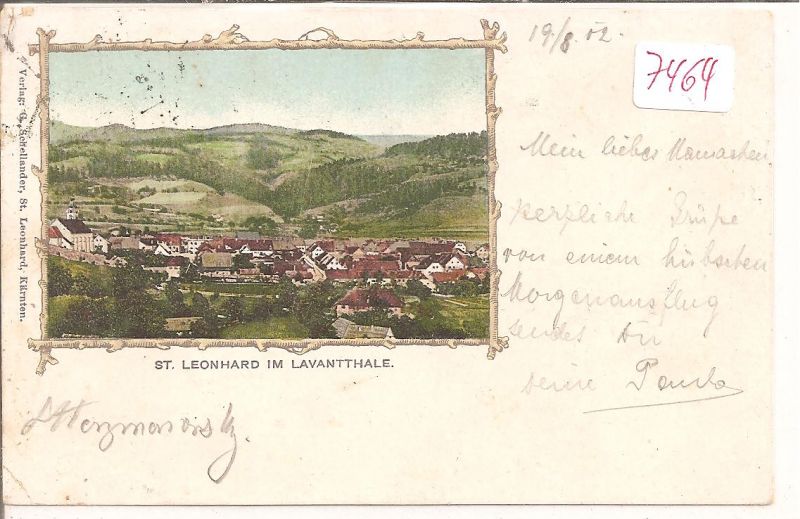 19/8 02.
7464
Mein liebes Mamachen
herzliche Grüße
von einem hübschen
Morgenausflug
sendet Dir
Deine Paula
Verlag: G. Schellander, St. Leonhard, Kärnten.
ST. LEONHARD IM LAVANTTHALE.